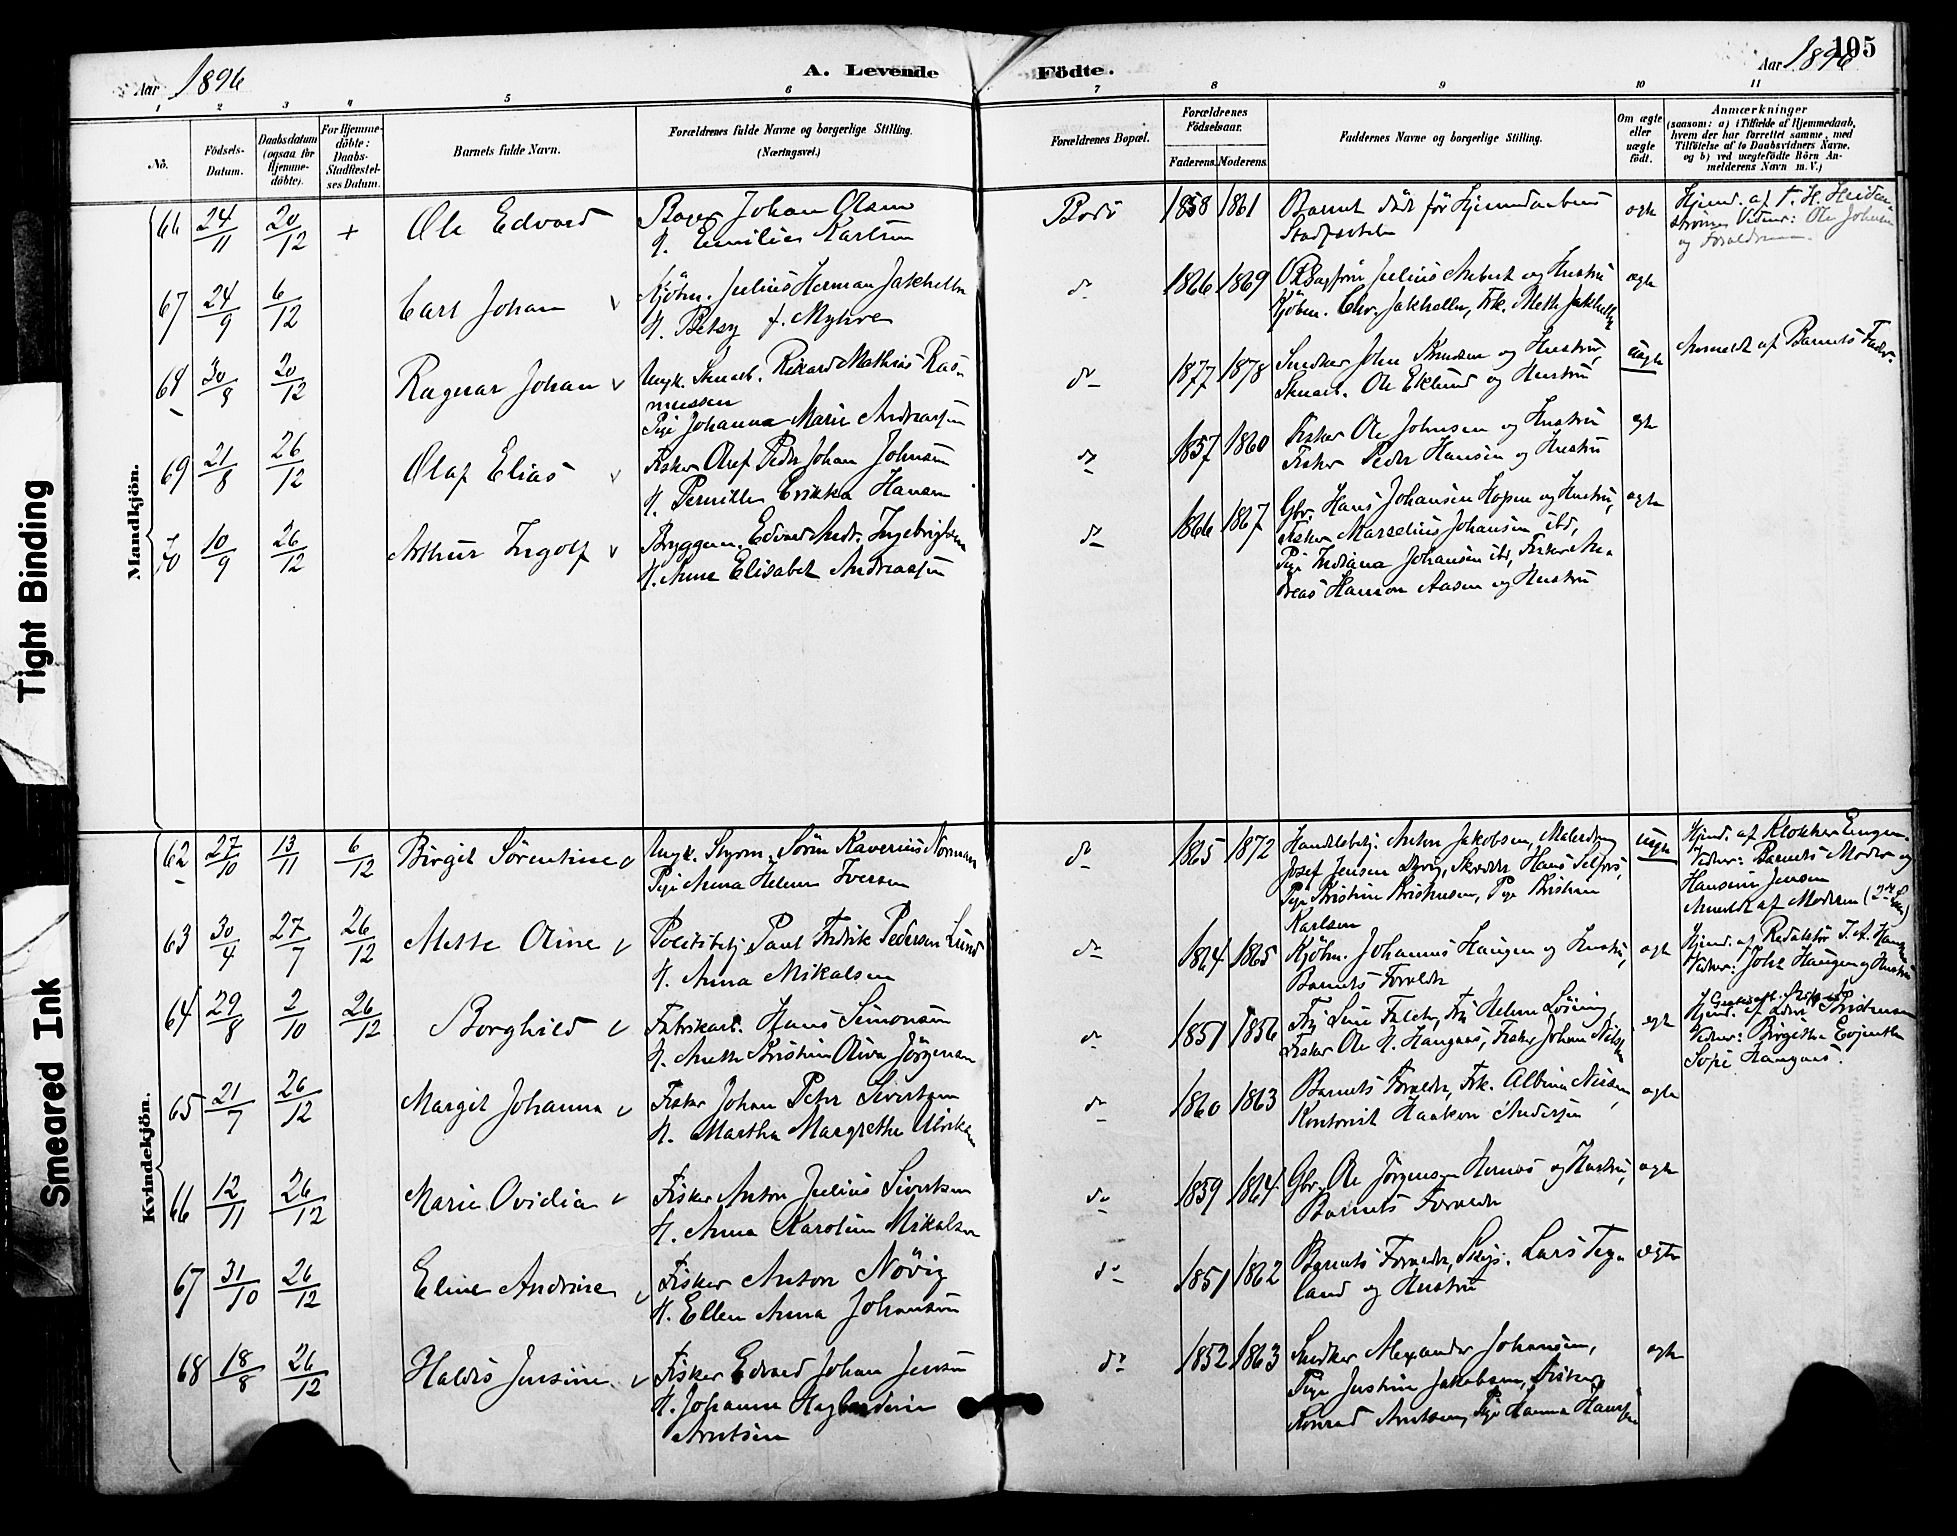 Aar 1896
A. Levende Födte.
Aar 1896
105
1 2 3 4 5 6 7 8 9 10 11
No.
Födsels-Datum.
Daabsdatum (ogsaa for Hjemme-döbte).
For Hjemme-döbte: Daabs-Stadfæstel-ses Datum.
Barnets fulde Navn.
Forældrenes fulde Navne og borgerlige Stilling.
(Næringsvei.)
Forældrenes Bopæl.
Forældrenes Födselsaar.
Faderens. Moderens.
Faddernes Navne og borgerlige Stilling.
Om ægte eller uægte födt.
Anmærkninger
(saasom: a) i Tilfælde af Hjemmedaab, hvem der har forrettet samme, med Tilföielse af to Daabsvidners Navne, og b) ved uægtefödte Börn An-melderens Navn m. V.)
Mandkjön.
66 24/11 20/12 + Ole Edvard
Johan Olsen
H. Emilie Karlsen
Bodö 1858 1861
Barnet död för Hjemmedaabens
Stadfæstelse
ægte
Hjemd. af
Vidner: Ole Johnsen
og Forældrene
67 24/9 6/12 Carl Johan v
Kjöbm. Julius Herman Jakhelln
H. Betsy f. Myhre
do 1866 1869
Julius Aubert og Hustru
Kjöbm. Chr. Jakhelln, Frk. Meth Jakhelln
ægte
68 30/8 20/12 Ragnar Johan v
Ungk. Rikard Mathias Ras-
mussen
Pige Johanna Marie Andreassen
do 1877 1878
Snedker John Knudsen og Hustru,
Ole Eklund og Hustru
uægte
Anmeldt af Barnets Fader.
69 21/8 26/12 Olaf Elias v
Fisker Oluf Peder Johan Johnsen
H. Pernille Erikka Hansen
do 1857 1860
Fisker Ole Johnsen og Hustru
Fisker Peder Hansen og Hustru
ægte
70 10/9 26/12 Arthur Ingolf v
Bryggem. Edvard Andr. Ingebrigtsen
H. Anne Elisabet Andreassen
do 1866 1867
Gbr. Hans Johansen Kopen og Hustru,
Fisker Marselius Johansen ibd,
Pige Indiana Johansen ibd, Fisker An-
dreas Hanson Aasen og Hustru
ægte
Kvindekjön.
62 27/10 13/11 6/12 Birgit Sörentine v
Ungk. Styrm. Sörin Kaverius Norman
Pige Anna Helene Iversen
do 1865 1872
Handlsbetj. Anton Jakobsen,
Josef Jensen Hans Selfors,
Pige Kristine Kristensen, Pige Kristian
Karlsen
uægte
Hjemd. af Klokker Engen.
Vidner: Barnets Moder og
Hansine Jensen
Anmeldt af Moderen
63 30/4 27/7 26/12 Mette Oline v
Politibetj. Paul Fredrik Pedersen Lund
H. Anna Mikalsen
do 1864 1865
Kjöbm. Johannes Haugen og Hustru,
Barnets Forældre
ægte
Hjemd. af Redaktör
Vidner: Johs Haugen og Hustru
64 29/8 2/10 26/12 Borghild v
Fabrikarb. Hans Simonsen
H. Anette Kristine Oliva Jörgensen
do 1851 1856
Fru Lene Falch, Frk Helene Löning,
Fisker Ole H. Haugnæs, Fisker Johan Nilsen
ægte
Hjemd. af Kristensen
Vidner: Birgithe Evjenth
Sofie Haugnæs.
65 21/7 26/12 Margit Johanna v
Fisker Johan Peter Sivertsen
H. Martha Margrethe Ulriksen
do 1860 1863
Barnets Forældre, Frk. Albine Nilsen,
Kontorist Haakon Andersen
ægte
66 12/11 26/12 Marie Ovidia v
Fisker Anton Julius Sivertsen
H. Anna Karoline Mikalsen
do 1859 1864
Gbr. Ole Jörgensen Hernes og Hustru,
Barnets Forældre
ægte
67 31/10 26/12 Eline Andrine v
Fisker Anton Növig
H. Ellen Anna Johansen
do 1851 1862
Barnets Forældre, Lars Teg-
land og Hustru
ægte
68 18/8 26/12 Haldis Jensine v
Fisker Edvard Johan Jensen
H. Johanne Hagbardine
Arntsen
do 1852 1863
Snedker Alexander Johansen,
Pige Justine Jakobsen, Fisker
Konrad Arntsen, Pige Hanna Hansen
ægte
Tight Binding
Smeared Ink